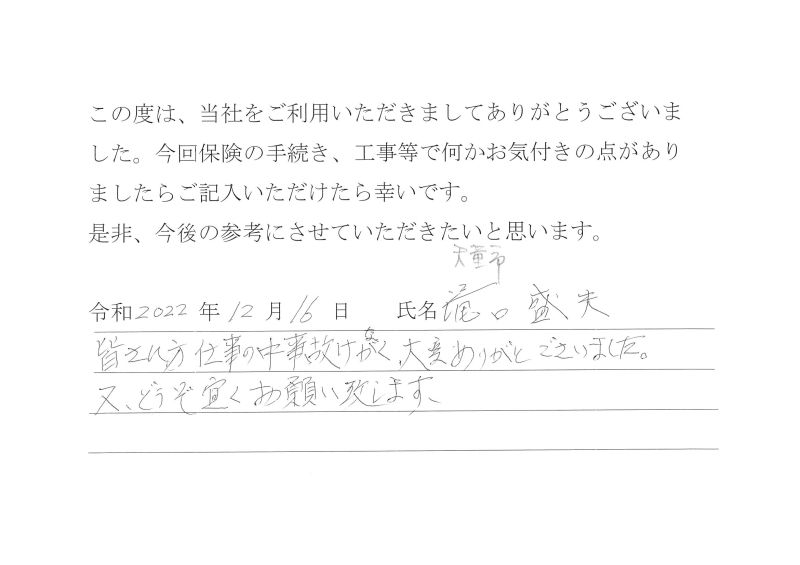 この度は、当社をご利用いただきましてありがとうございま
した。今回保険の手続き、工事等で何かお気付きの点があり
ましたらご記入いただけたら幸いです。
是非、今後の参考にさせていただきたいと思います。
天童市
令和2022年12月16日 氏名 滝口盛夫
皆さん方仕事の中事故けがなく、大変ありがとございました。
又、どうぞ宜くお願い致します、